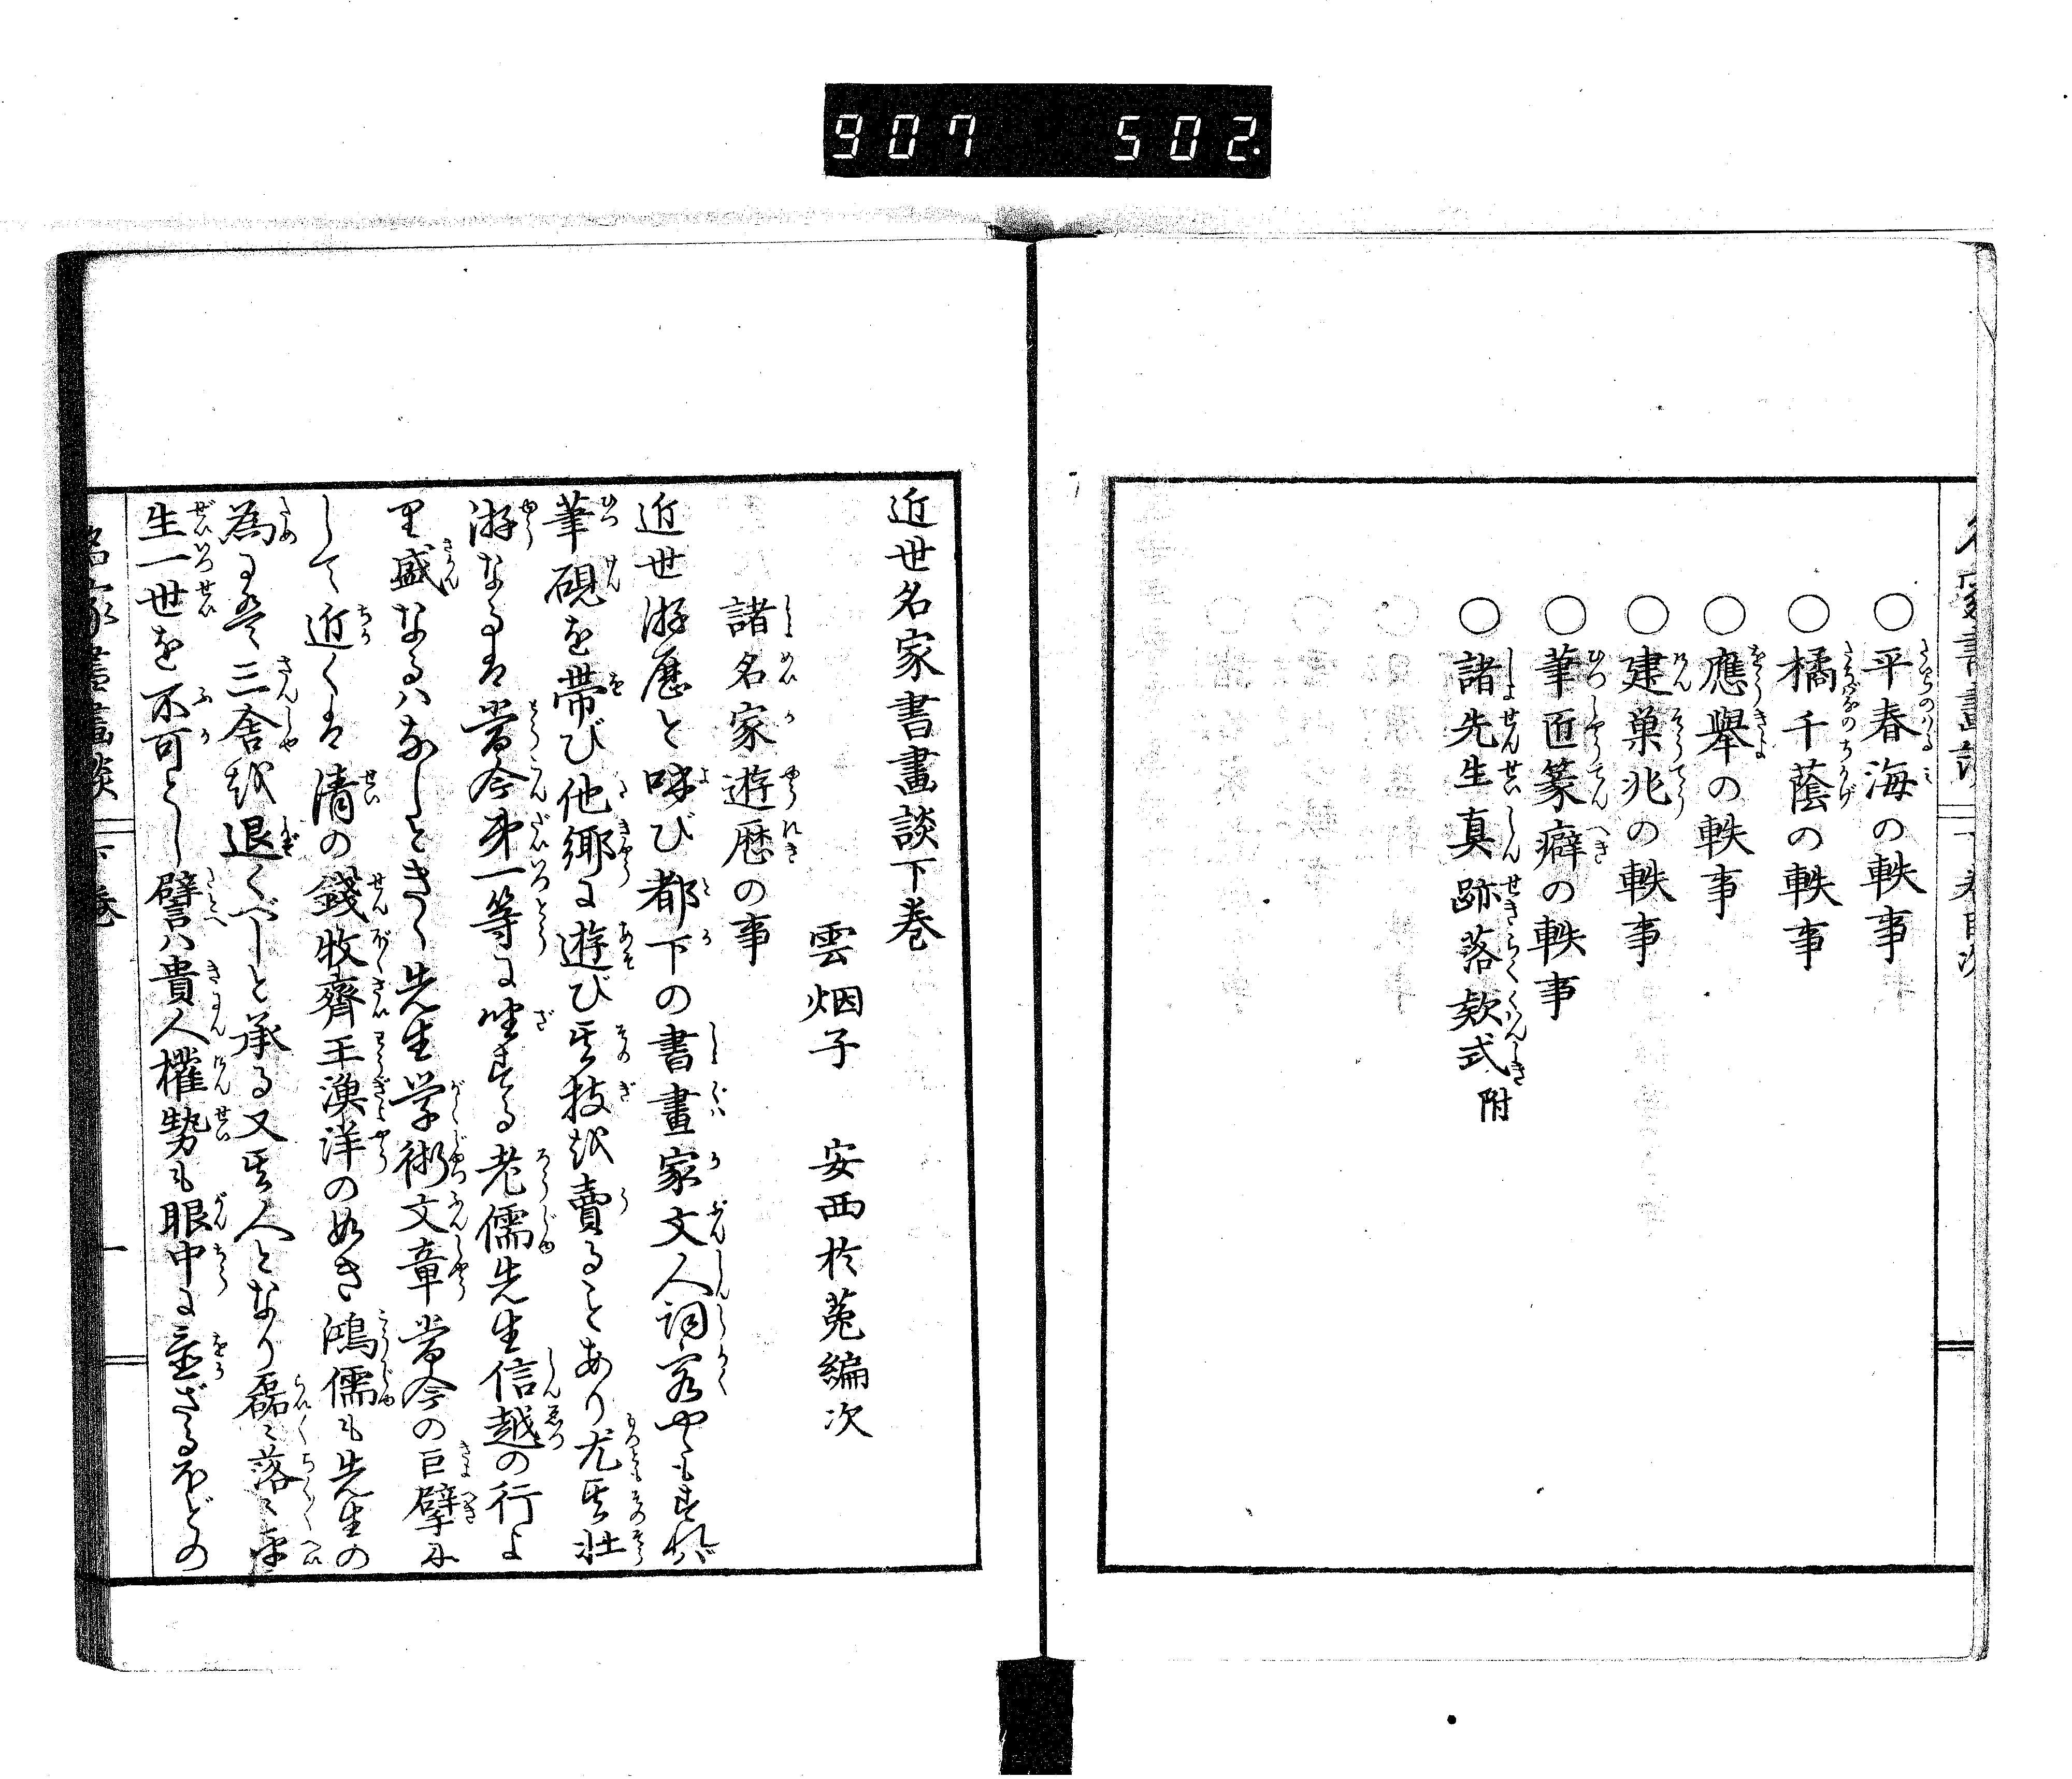 907 502
○平春海の軼事
○橘千蔭の軼事
○應擧の軼事
○建巣兆の軼事
○筆匠篆癖の軼事
○諸先生真跡落款式附
近世名家書畫談下巻
雲烟子 安西於菟編次
諸名家遊歴の事
近世游歴と呼び都下の書畫家文人詞客やゝもすれば
筆硯を帯び他郷に遊び其技を賣ることあり尤其壮
游なる事は當今第一等に坐する老儒先生信越の行よ
り盛なるハなしときく先生学術文章當今の巨擘に
して近くは清の錢牧齊王漁洋の如き鴻儒も先生の
為には三舎を退くべしと承る又其人となり磊々落々
生一世を不可とし譬ハ貴人權勢も眼中に置ざるほどの